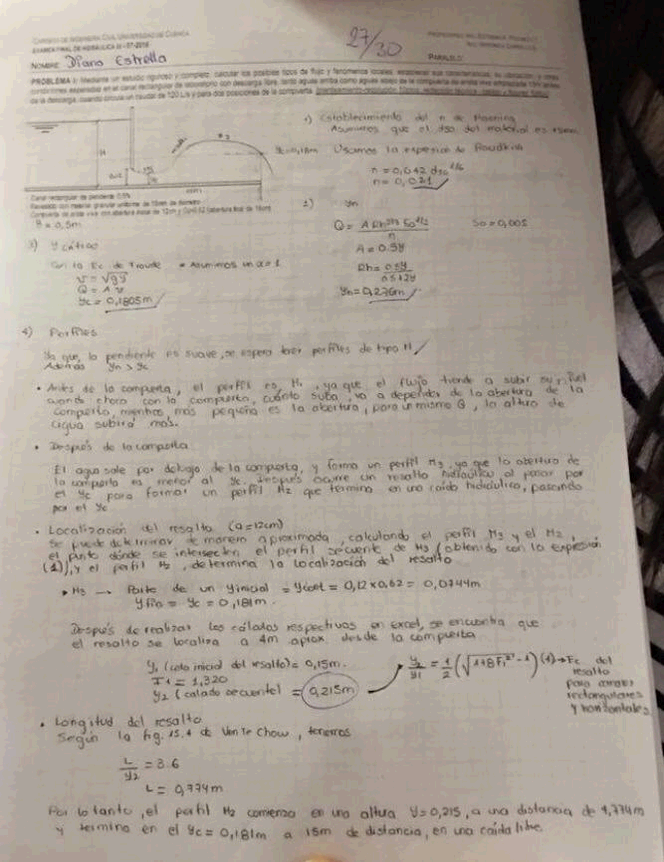 CARRERA DE INGENIERÍA CIVIL, UNIVERSIDAD DE CUENCA
EXAMEN FINAL DE HIDRÁULICA III - 07-2018
27/30
NOMBRE: Diana Estrella
PARALELO:
PROBLEMA 1: Mediante un estudio riguroso y completo, calcular los posibles tipos de flujo y fenómenos locales, establecer sus características, su ubicación, y otras
de la descarga, cuando circula un caudal de 120 L/s y para dos posiciones de la compuerta.
1) Establecimiento del n de Manning
Asumimos que el d50 del material es 15mm.
yc=0,18m
Usamos la expresión de
n = 0,042 d50^1/6
n = 0,021
Canal rectangular de pendiente 0,5%
Revestido con material granular uniforme de 15mm de diámetro
Compuerta de arista viva con abertura inicial de 12cm y Cc=0,62 (abertura final de 16cm)
B = 0,5m
2) yn
Q = A Rh^2/3 So^1/2 / n
So = 0,005
A = 0.5y
Rh = 0.5y / 0.5+2y
yn = 0,276m
3) y crítico
Con la Ec de Froude = Asumimos un α = 1
v = √gy
Q = A v
yc = 0,1805m
4) Perfiles
Ya que, la pendiente es suave, se espera tener perfiles de tipo M
Además yn > yc
• Antes de la compuerta, el perfil es, M1, ya que el flujo tiende a subir su nivel
cuando choca con la compuerta, cuánto suba, va a depender de la abertura de la
compuerta, mientras más pequeña es la abertura, para un mismo Q, la altura de
agua subirá más.
• Después de la compuerta
El agua sale por debajo de la compuerta, y forma un perfil M3, ya que la abertura de
la compuerta es menor al yc. Después ocurre un resalto hidráulico al pasar por
el yc para formar un perfil M2 que termina en una caída hidráulica, pasando
por el yc
• Localización del resalto (a=12cm)
Se puede determinar de manera aproximada, calculando el perfil M3 y el M2,
el punto dónde se intersecten el perfil secuente de M3 (obtenido con la expresión
(1)), y el perfil M2, determina la localización del resalto
• M3 → Parte de un yinicial = ycont = 0,12 x 0,62 = 0,0744m
yfin = yc = 0,181m.
Después de realizar los cálculos respectivos en excel, se encuentra que
el resalto se localiza a 4m aprox. desde la compuerta
y1 (calado inicial del resalto) = 0,15m.
F1 = 1,320
y2 (calado secuente) = 0,215m
y2/y1 = 1/2 (√1+8F1² - 1) (1) → Ec del
resalto
para canales
rectangulares
y horizontales.
• Longitud del resalto
Según la fig. 15.4 de Ven Te Chow, tenemos
L/y2 = 3.6
L = 0,774m
Por lo tanto, el perfil M2 comienza en una altura y=0,215, a una distancia de 4,774m
y termina en el yc = 0,181m a 15m de distancia, en una caída libre.